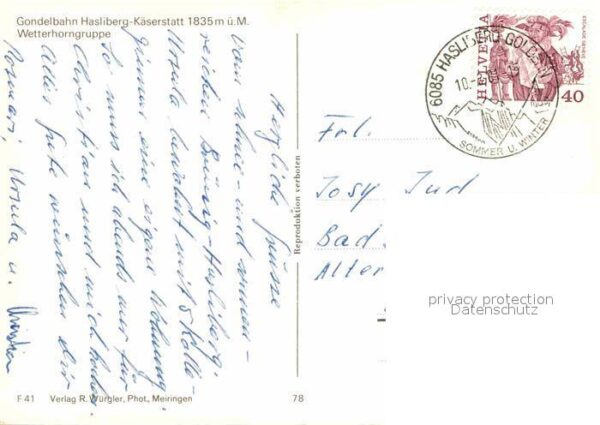 Gondelbahn Hasliberg-Käserstatt 1835 m ü.M.
Wetterhorngruppe
Herzliche Grüsse
vom schnee- und sonnen-
reichen Brünig-Hasliberg.
Ursula bewohnt mit 5 Kolle-
ginnen eine eigene Wohnung.
So muss ich abends nur für
Christian und mich kochen.
Alles Gute wünschen dir
Rosmari, Ursula u.
Christian
Reproduktion verboten
6085 HASLIBERG GOLDERN
SOMMER U. WINTER
HELVETIA
40
Frl.
Josy Jud
Bad
Alter
privacy protection
Datenschutz
F 41 Verlag R. Würgler, Phot., Meiringen 78